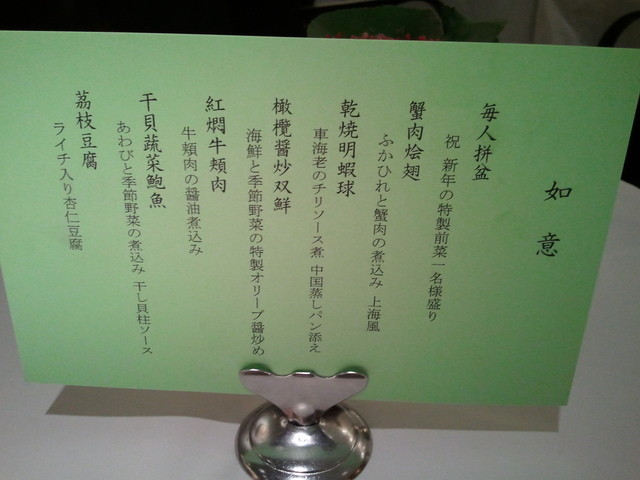 如意
毎人拼盆
祝 新年の特製前菜一名様盛り
蟹肉烩翅
ふかひれと蟹肉の煮込み 上海風
乾燒明蝦球
車海老のチリソース煮 中国蒸しパン添え
橄欖醤炒双鮮
海鮮と季節野菜の特製オリーブ醤炒め
紅燜牛頬肉
牛頬肉の醤油煮込み
干貝蔬菜鮑魚
あわびと季節野菜の煮込み 干し貝柱ソース
荔枝豆腐
ライチ入り杏仁豆腐